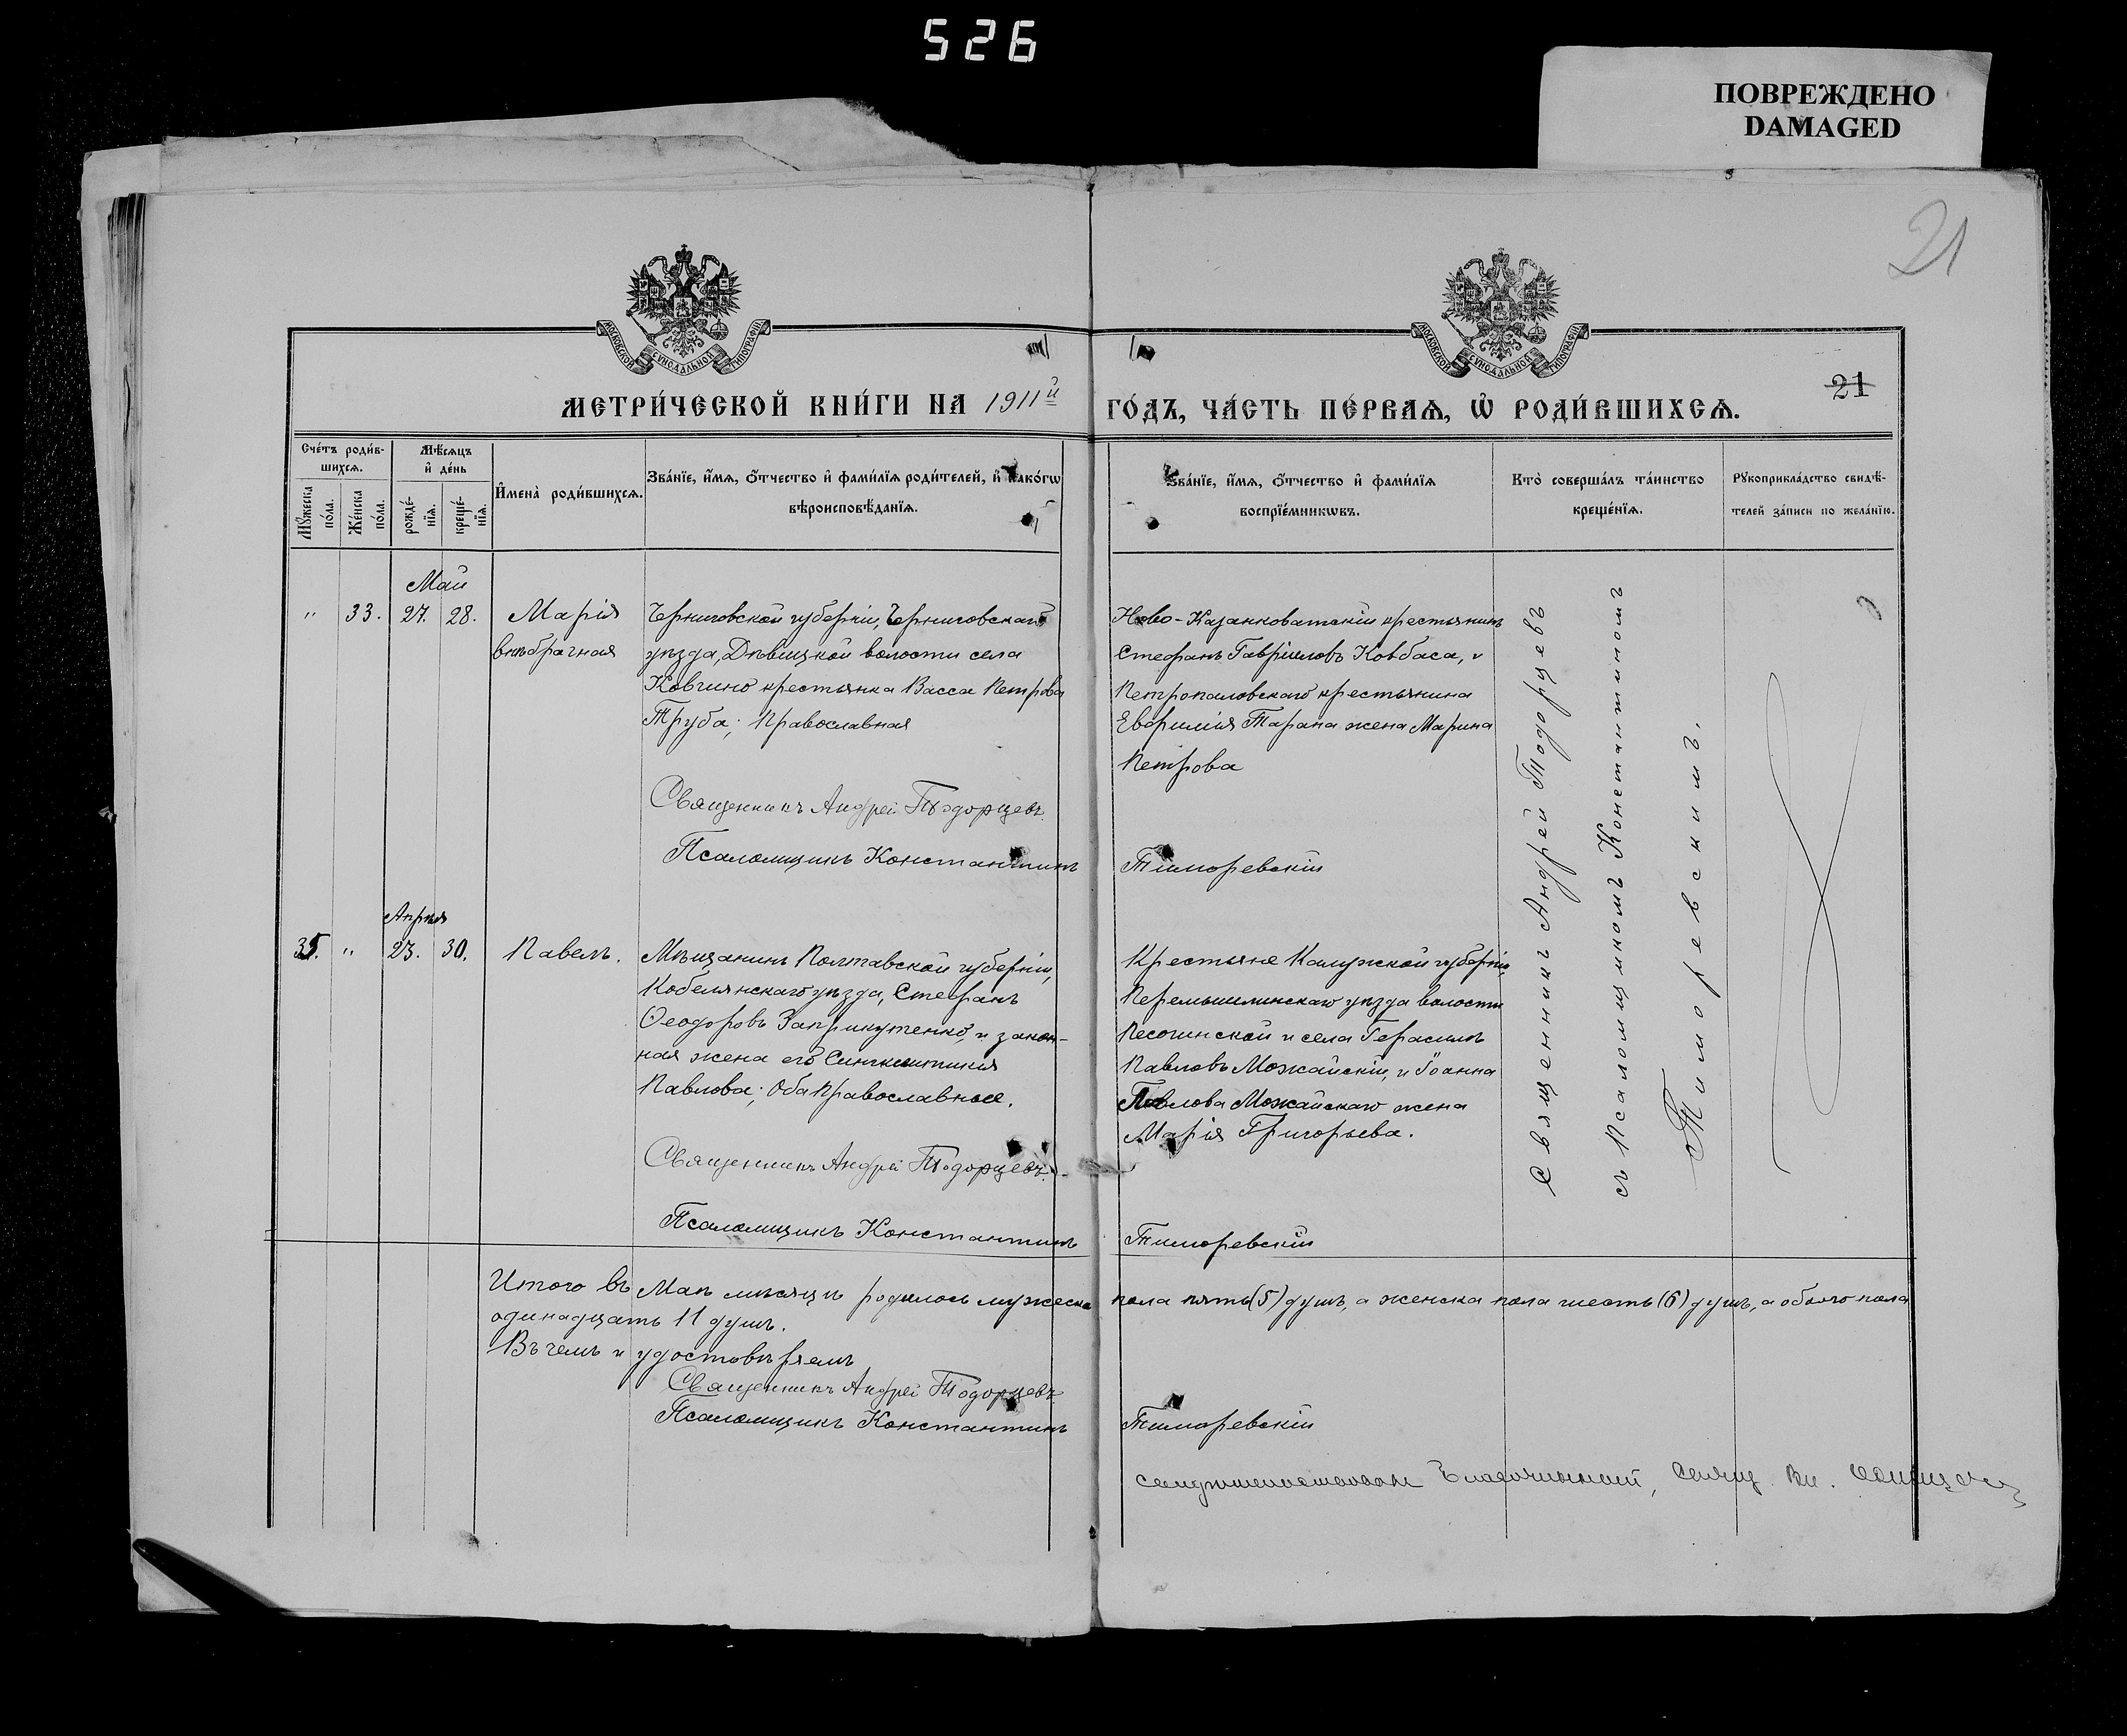 526
ПОВРЕЖДЕНО
DAMAGED
21
МОСКОВСКОЙ СУНОДАЛЬНОЙ ТИПОГРАФІИ
МОСКОВСКОЙ СУНОДАЛЬНОЙ ТИПОГРАФІИ
21
МЕТРИ́ЧЕСКОЙ КНИ́ГИ НА 1911й ГО́ДЪ, ЧА́СТЬ ПЕ́РВАѦ, Ѡ҆ РОДИ́ВШИХСѦ.
Сче́тъ роди́в-
шихсѧ.
Мѣ́сѧцъ
и҆ де́нь
Мꙋ́жеска по́ла.
Же́нска по́ла.
рожде́-
нїѧ.
креще́-
нїѧ.
И҆мена̀ роди́вшихсѧ.
Зва́нїе, и҆́мѧ, ѻ҆́тчество и҆ фами́лїѧ роди́телей, и҆ како́гѡ
вѣроисповѣ́данїѧ.
Зва́нїе, и҆́мѧ, ѻ҆́тчество и҆ фами́лїѧ
воспрїе́мникѡвъ.
Кто̀ соверша́лъ та́инство
креще́нїѧ.
Рꙋкоприкла́дство свидѣ́-
телей за́писи по жела́нїю.
Май
" 33. 27. 28. Марія
внѣбрачная
Черниговской губерніи, Черниговскаго
уѣзда, Дѣвицкой волости села
Ковчино крестьянка Васса Петрова
Труба; Православная
Священникъ Андрей Тодорцевъ.
Псаломщикъ Константинъ Тиморевскій
Ново-Казанковатскій крестьянинъ
Стефанъ Гавріиловъ Ковбаса, и
Петропаловскаго крестьянина
Евфимія Тарана жена Марина
Петрова
Священникъ Андрей Тодорцевъ
съ Псаломщикомъ Константиномъ
Тиморевскимъ.
Апрѣля
35. " 23. 30. Павелъ.
Мѣщанинъ Полтавской губерніи,
Кобелянскаго уѣзда, Стефанъ
Ѳеодоровъ Заприкутенко, и закон-
ная жена его Синклитикія
Павлова; Оба Православные.
Священникъ Андрей Тодорцевъ.
Псаломщикъ Константинъ Тиморевскій
Крестьяне Калужской губерніи,
Перемышлинскаго уѣзда волости
Песочинской и села Герасимъ
Павловъ Можайскій, и Іоанна
Павлова Можайскаго жена
Марія Григорьева.
Итого въ Маѣ мѣсяцѣ родилось мужеска пола пять (5) душъ, а женска пола шесть (6) душъ, а обоего пола
одинадцать 11 душъ.
Въ чемъ и удостовѣряемъ
Священникъ Андрей Тодорцевъ
Псаломщикъ Константинъ Тиморевскій
Благочинный, Свящ. Вл.